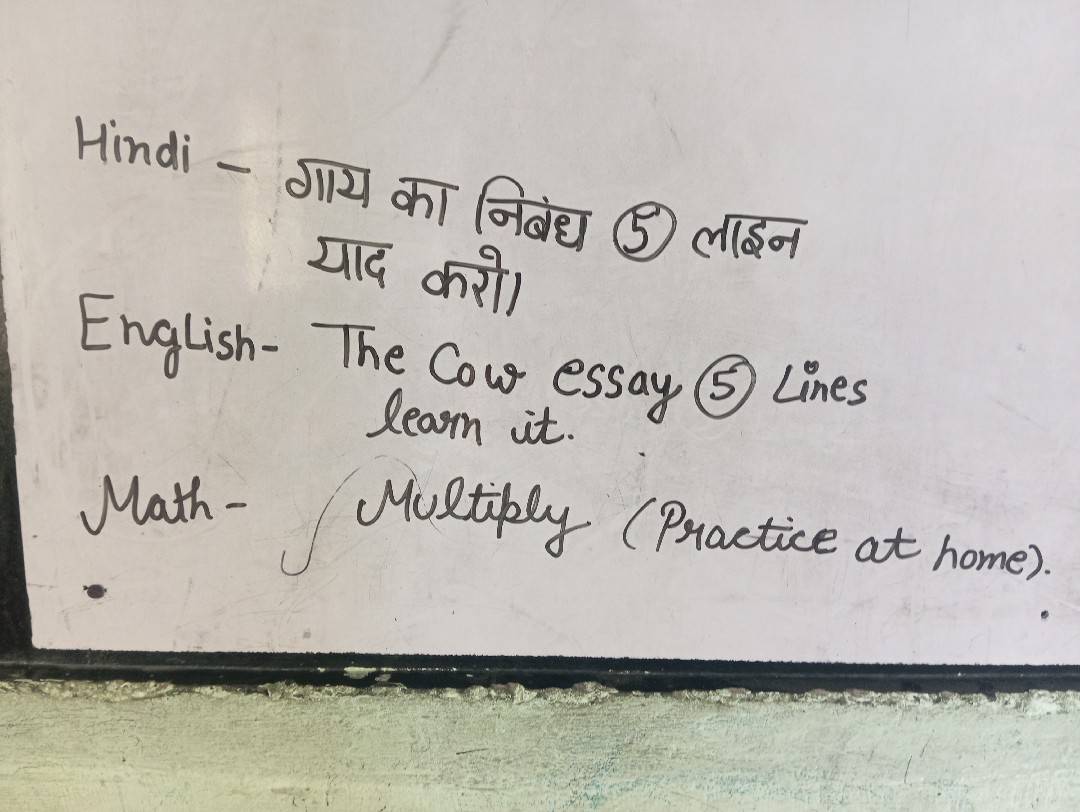 Hindi - गाय का निबंध 5 लाइन
याद करो।
English- The Cow essay 5 Lines
learn it.
Math- Multiply (Practice at home).